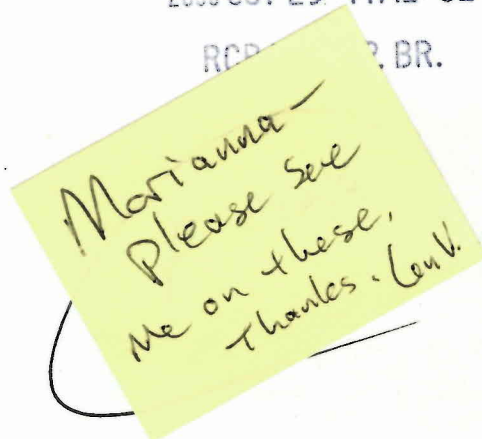 BR.
Marianna —
Please see
me on these,
Thanks. Len V.